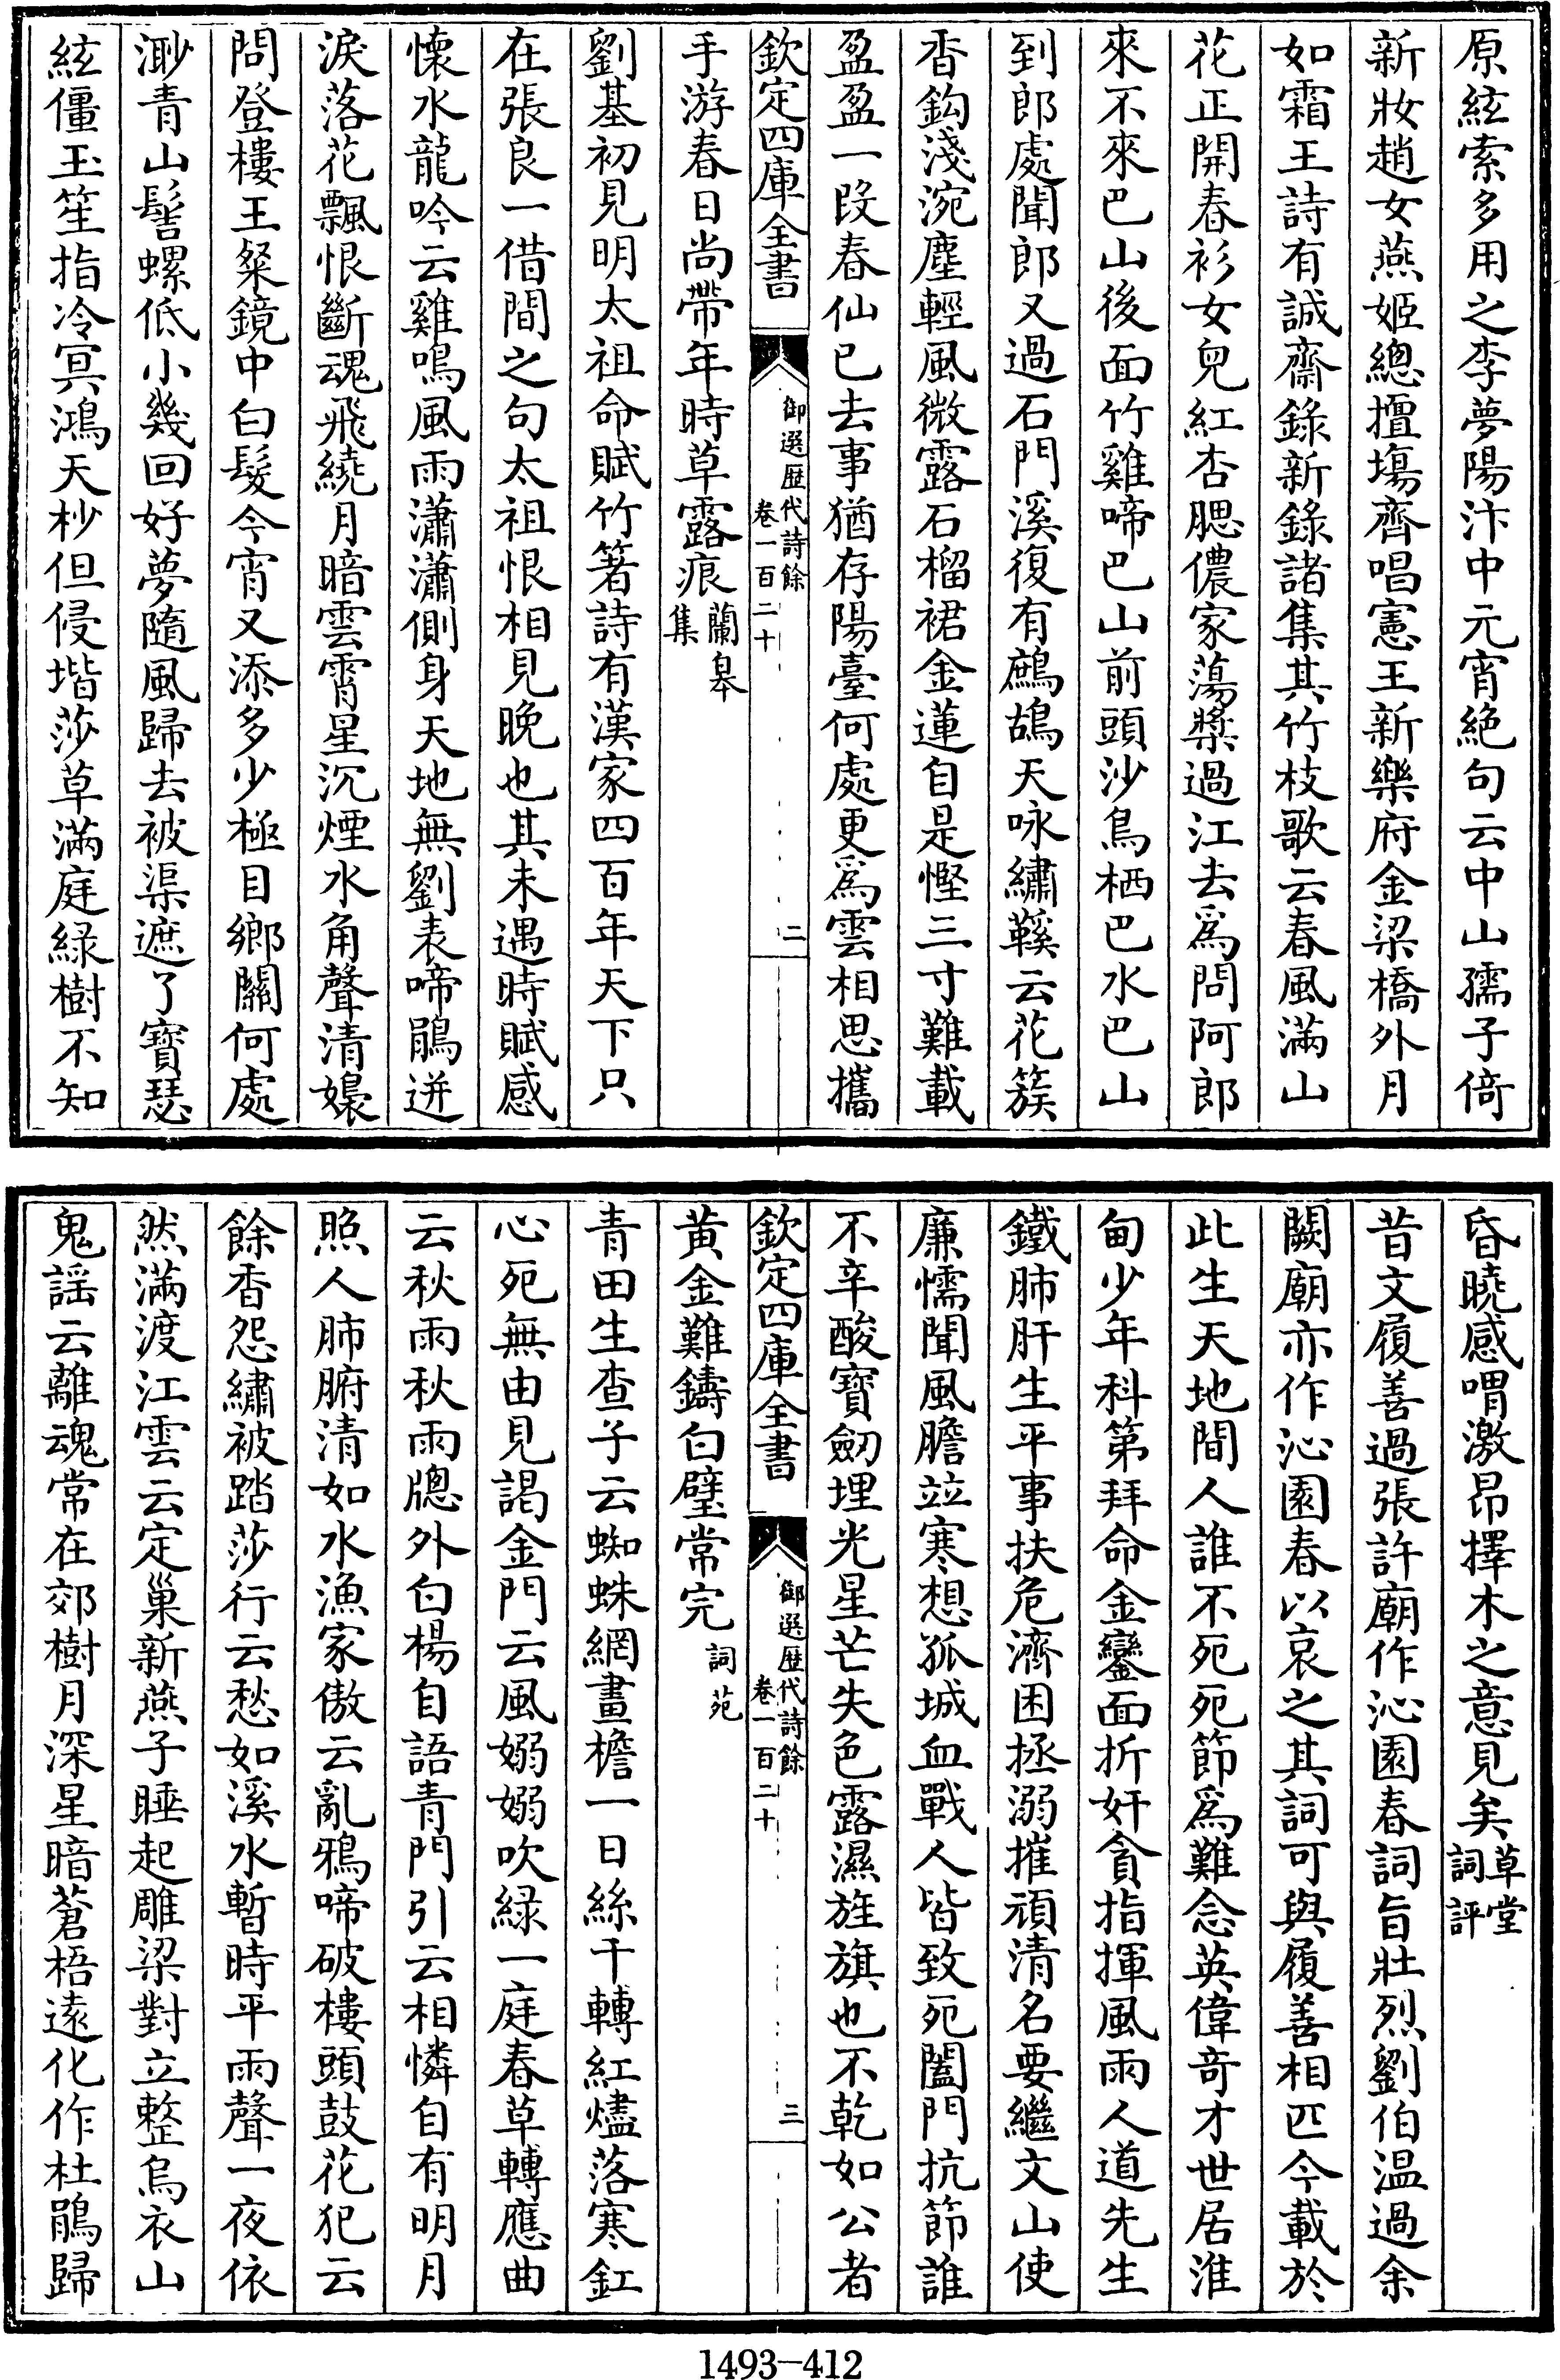 原絃索多用之李夢陽汴中元宵絶句云中山孺子倚
新妝趙女燕姬總擅場齊唱憲王新樂府金梁橋外月
如霜王詩有誠齋錄新錄諸集其竹枝歌云春風滿山
花正開春衫女兒紅杏腮儂家蕩槳過江去爲問阿郎
來不來巴山後面竹雞啼巴山前頭沙鳥栖巴水巴山
到郎處聞郎又過石門溪復有鷓鴣天咏繡鞵云花簇
香鈎淺涴塵輕風微露石榴裙金蓮自是慳三寸難載
盈盈一段春仙已去事猶存陽臺何處更爲雲相思攜
欽定四庫全書
御選歷代詩餘
卷一百二十
二
手游春日尚帶年時草露痕蘭皋
集
劉基初見明太祖命賦竹箸詩有漢家四百年天下只
在張良一借間之句太祖恨相見晚也其未遇時賦感
懷水龍吟云雞鳴風雨瀟瀟側身天地無劉表啼鵑迸
淚落花飄恨斷魂飛繞月暗雲霄星沉煙水角聲清嫋
問登樓王粲鏡中白髮今宵又添多少極目鄉關何處
渺青山髻螺低小幾回好夢隨風歸去被渠遮了寶瑟
絃僵玉笙指冷冥鴻天杪但侵堦莎草滿庭綠樹不知
昏曉感喟激昂擇木之意見矣草堂
詞評
昔文履善過張許廟作沁園春詞旨壯烈劉伯温過余
闕廟亦作沁園春以哀之其詞可與履善相匹今載於
此生天地間人誰不死死節爲難念英偉竒才世居淮
甸少年科第拜命金鑾面折奸貪指揮風雨人道先生
鐵肺肝生平事扶危濟困拯溺摧頑清名要繼文山使
廉懦聞風膽竝寒想孤城血戰人皆致死闔門抗節誰
不辛酸寶劒埋光星芒失色露濕旌旗也不乾如公者
欽定四庫全書
御選歷代詩餘
卷一百二十
三
黄金難鑄白璧常完詞苑
青田生查子云蜘蛛網畫檐一日絲千轉紅燼落寒釭
心死無由見謁金門云風嫋嫋吹綠一庭春草轉應曲
云秋雨秋雨牕外白楊自語青門引云相憐自有明月
照人肺腑清如水漁家傲云亂鴉啼破樓頭鼓花犯云
餘香怨繡被踏莎行云愁如溪水暫時平雨聲一夜依
然滿渡江雲云定巢新燕子睡起雕梁對立整烏衣山
鬼謡云離魂常在郊樹月深星暗蒼梧遠化作杜鵑歸
1493-412